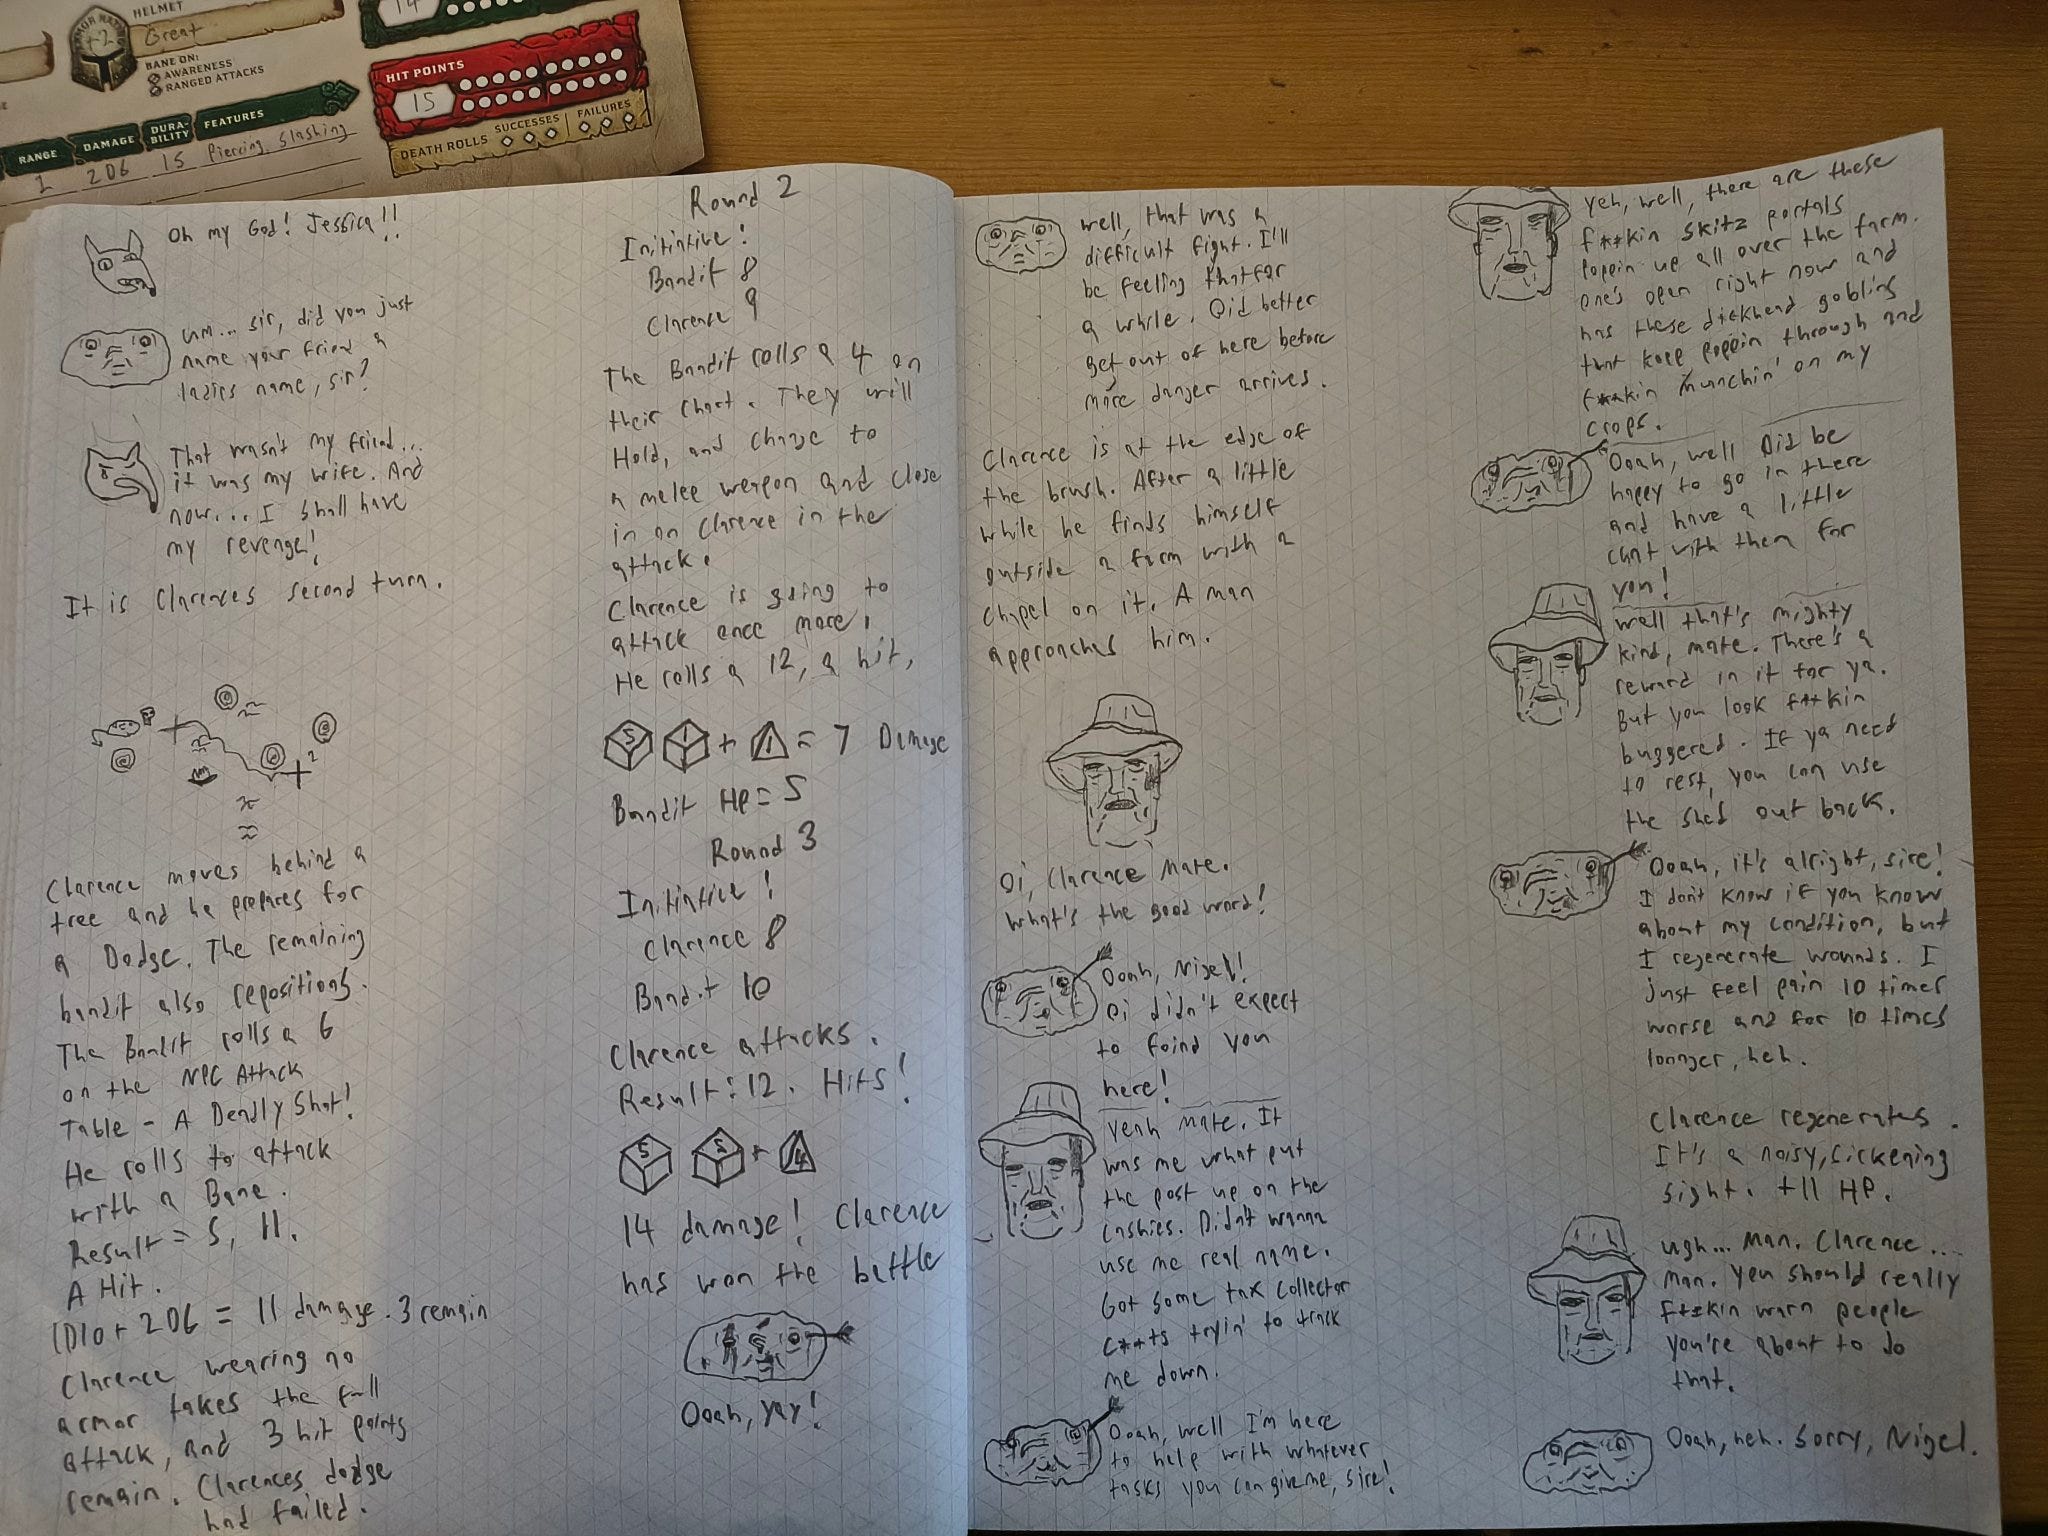 HELMET
Great
ARMOR RATING
+2
BANE ON:
AWARENESS
RANGED ATTACKS
14
HIT POINTS
15
DEATH ROLLS
SUCCESSES
FAILURES
RANGE
DAMAGE
DURA-
BILITY
FEATURES
1
2D6
15
Piercing, Slashing
Oh my God! Jessica!!
Um... sir, did you just
name your friend a
ladies name, sir?
That wasn't my friend...
it was my wife. And
now... I shall have
my revenge!
It is Clarences second turn.
2
Clarence moves behind a
tree and he prepares for
a Dodge. The remaining
bandit also repositions.
The Bandit rolls a 6
on the NPC Attack
Table - A Deadly Shot!
He rolls to attack
with a Bane.
Result = 5, 11.
A Hit.
1D10 + 2D6 = 11 damage. 3 remain
Clarence wearing no
armor takes the full
attack, and 3 hit points
remain. Clarences dodge
had failed.
Round 2
Initiative!
Bandit 8
Clarence 9
The Bandit rolls a 4 on
their chart. They will
Hold, and change to
a melee weapon and close
in on Clarence in the
attack.
Clarence is going to
attack once more.
He rolls a 12, a hit,
5 1 + 1 = 7 Damage
Bandit HP = 5
Round 3
Initiative!
Clarence 8
Bandit 10
Clarence attacks.
Result: 12. Hits!
5 5 + 4
14 damage! Clarence
has won the battle
Ooah, yay!
Well, that was a
difficult fight. I'll
be feeling that for
a while. Oid better
get out of here before
more danger arrives.
Clarence is at the edge of
the brush. After a little
while he finds himself
outside a farm with a
chapel on it. A man
approaches him.
Oi, Clarence mate.
What's the good word!
Ooah, Nigel!
Oi didn't expect
to foind you
here!
Yeah mate. It
was me what put
the post up on the
cashies. Didn't wanna
use me real name.
Got some tax collector
c**ts tryin' to track
me down.
Ooah, well I'm here
to help with whatever
tasks you can give me, sire!
Yeh, well, there are these
f**kin skitz portals
poppin up all over the farm.
one's open right now and
has these dickhead goblins
that keep poppin through and
f**kin munchin' on my
crops.
Ooah, well Oid be
happy to go in there
and have a little
chat with them for
you!
Well that's mighty
kind, mate. There's a
reward in it for ya.
But you look f**kin
buggered. If ya need
to rest, you can use
the shed out back.
Ooah, it's alright, sire!
I don't know if you know
about my condition, but
I regenerate wounds. I
just feel pain 10 times
worse and for 10 times
longer, heh.
Clarence regenerates.
It's a noisy, sickening
sight. +11 HP.
Ugh... Man. Clarence....
Man. You should really
f**kin warn people
you're about to do
that.
Ooah, heh. Sorry, Nigel.